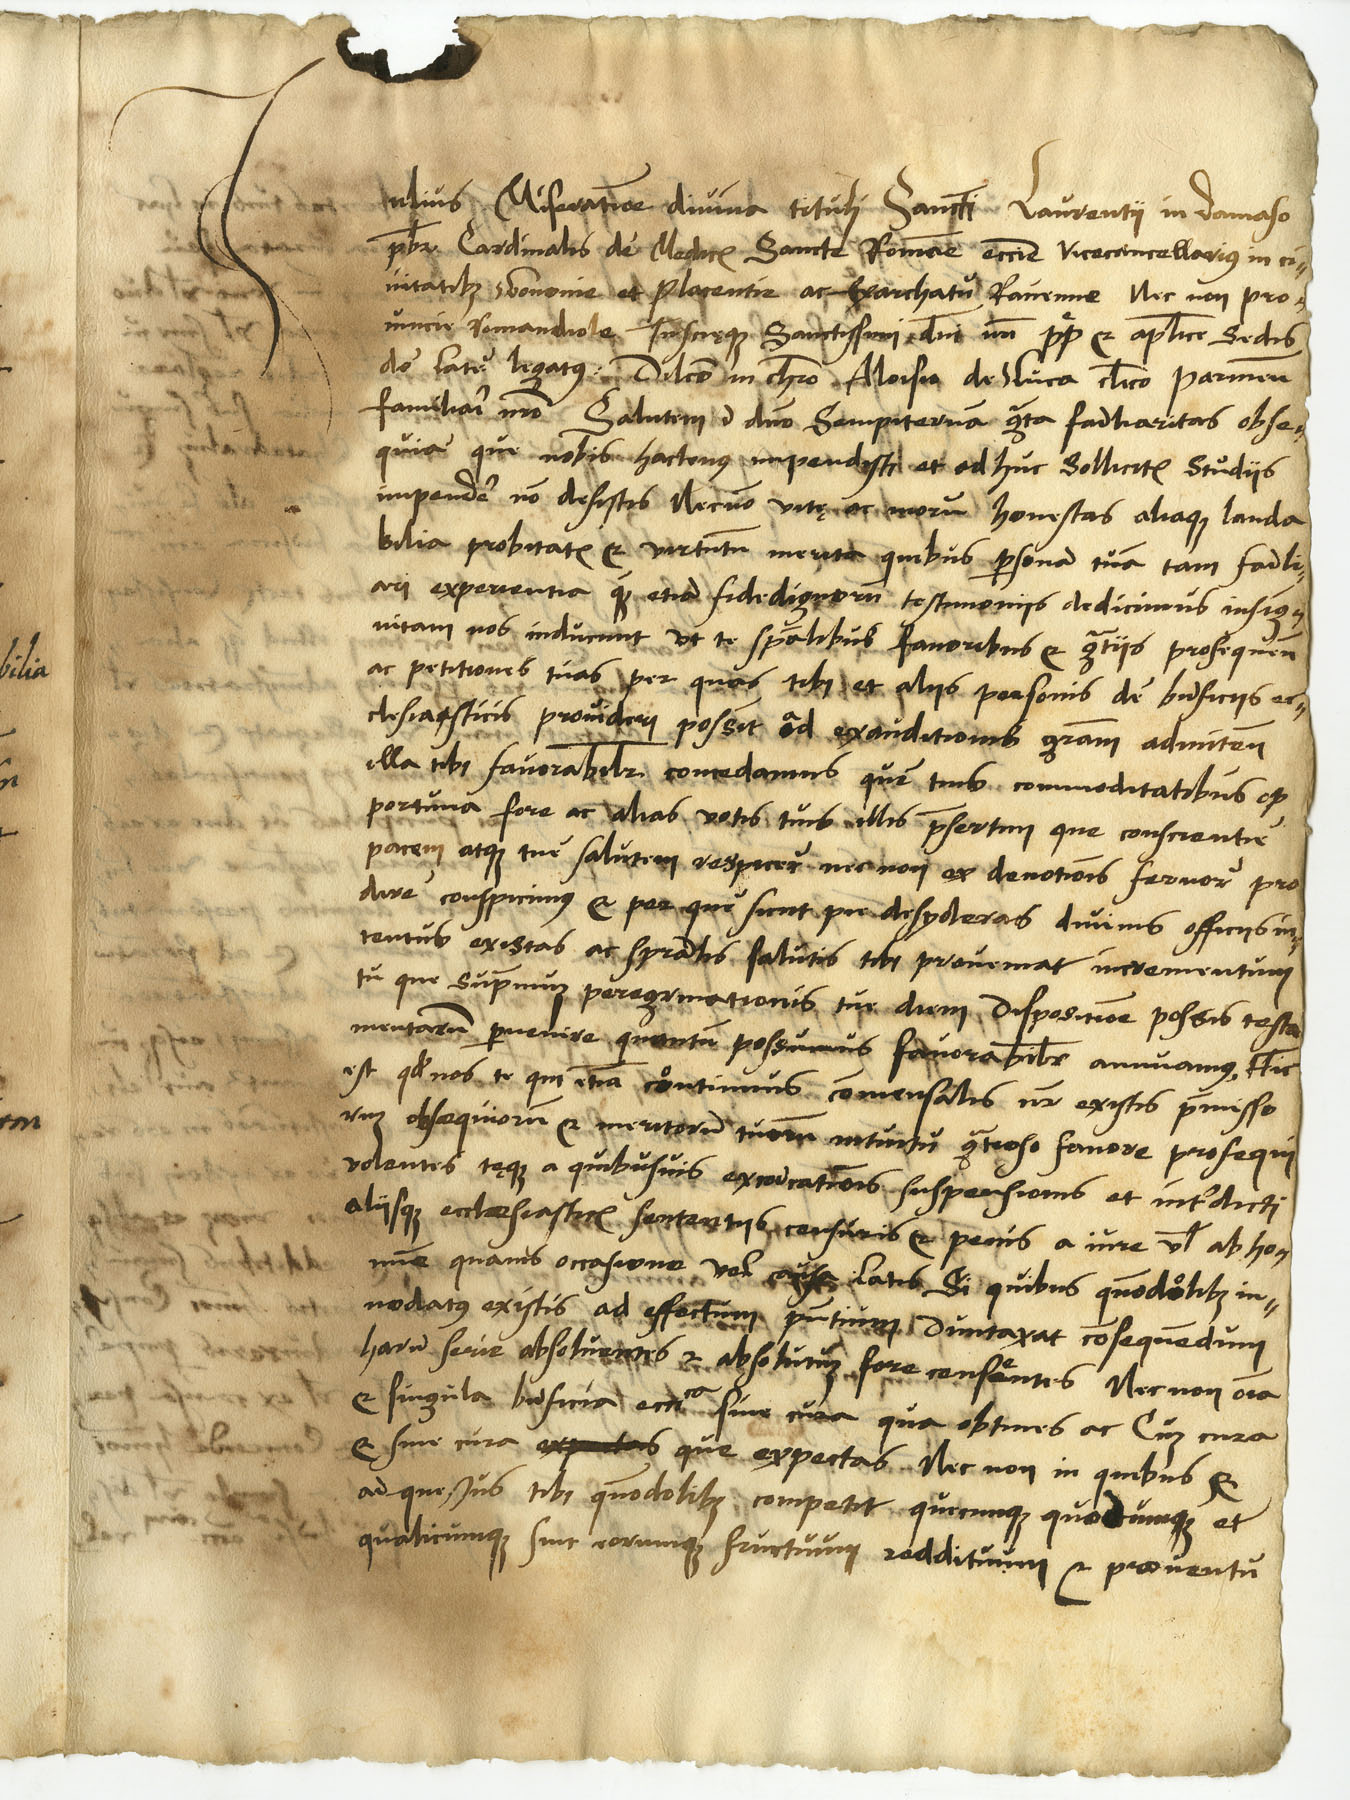 Julius Miseratioe divina tituli Sancti Laurentii in damaso
pbr Cardinalis de Medicis Sancte Romae eccie Vicecancellarius in ci=
vitatibz Bononie et Placentie ac Exarchatu Ravenne Nec non pro=
vincie Romandiole Tuscięqz Sanctissimi dni nri pp & aplice Sedis
de latere legatus: Dilco in chro Aloisio de Luca clico parmen
familiari nro Salutem i dno Sempiternā grata familiaritas obse=
quia que nobis hactenus impendisti et ad huc Sollicitis Studiis
impendere nō desistis Necnō vitę ac morū honestas aliaqz lauda
bilia probitatis & virtutū merita quibus psonā tuā tam famili=
ari experientia qz etiā fidedignorū testimoniis dedicimus insig=
nitam nos inducunt ut te spalibus favoribus & gratiis prosequen
ac petitiones tuas per quas tibi et aliis personis de bnficiis ec=
clesiasticis provideri possit ad exauditionis gram admitten
illa tibi favorabilr concedamus que tuis commoditatibus op
portuna fore ac alias votis tuis illis psertim que conscientie
pacem atqz tue salutem respicere nec non ex devotiois fervore pro
dire conspicimus & per que sicut pie desyderas divinis officiis in=
tentus existas ac spralis salutis tibi proveniat incrementum
tu que supmuz peregrinationis tue diem Dispositioe possis testa
mentarū pvenire quantū possumus favorabilr annuamus. Hic
est qd nos te qui etiā continuus cōmensalis nr existis pmisso
rum obsequiorū & meritorū tuorū intuitu gratioso favore prosequi
volentes tęqz a quibusvis excōicationis suspensionis et intdicti
aliisqz ecclesiasticis sententiis censuris & penis a iure vl ab ho=
mine quavis occasione vel causa latis Si quibus quodolibz in=
nodatus existis ad effectum pntium Duntaxat cōsequendum
harū serie absolventes & absolutuz fore censentes Nec non oia
& singula bnficia eccca sine cura qua obtines ac Cuz cura
& sine cura expectas que expectas Nec non in quibus &
ad que Jus tibi quodolibz competit quecunqz quodcunqz et
qualicumqz sint eorumqz fructuum reddituum & proventu
bilia